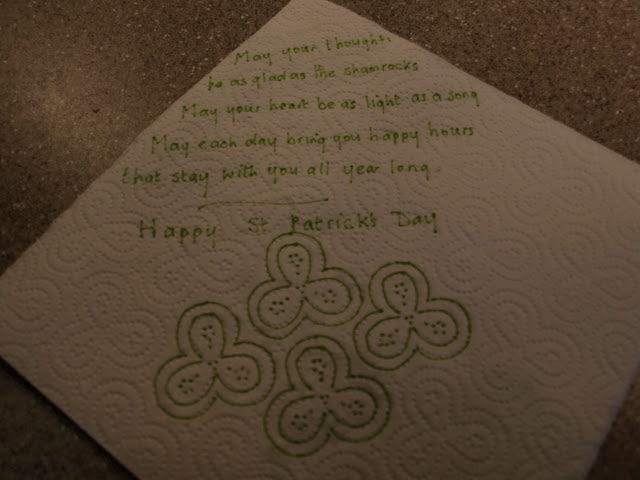 May your thoughts
be as glad as the shamrocks
May your heart be as light as a song
May each day bring you happy hours
that stay with you all year long.
Happy St Patrick's Day